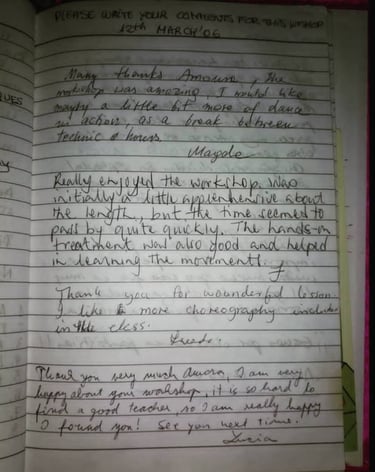 PLEASE WRITE YOUR COMMENTS FOR THIS WKSHOP
12th MARCH '06
Many thanks Amoura, the
workshop was amazing. I would like
maybe a little bit more of dance
in action as a break between
technic hours
Magda
Really enjoyed the workshop. Was
initially a little apprehensive about
the length, but the time seemed to
pass by quite quickly. The hands-on
treatment was also good and helped
in learning the movements.
Thank you for wounderful lesson
I like more choreography
in the class.
Thank you very much Amora, I am very
happy about your workshop, it is so hard to
find a good teacher, so I am really happy
I found you! See you next time.
Lucia